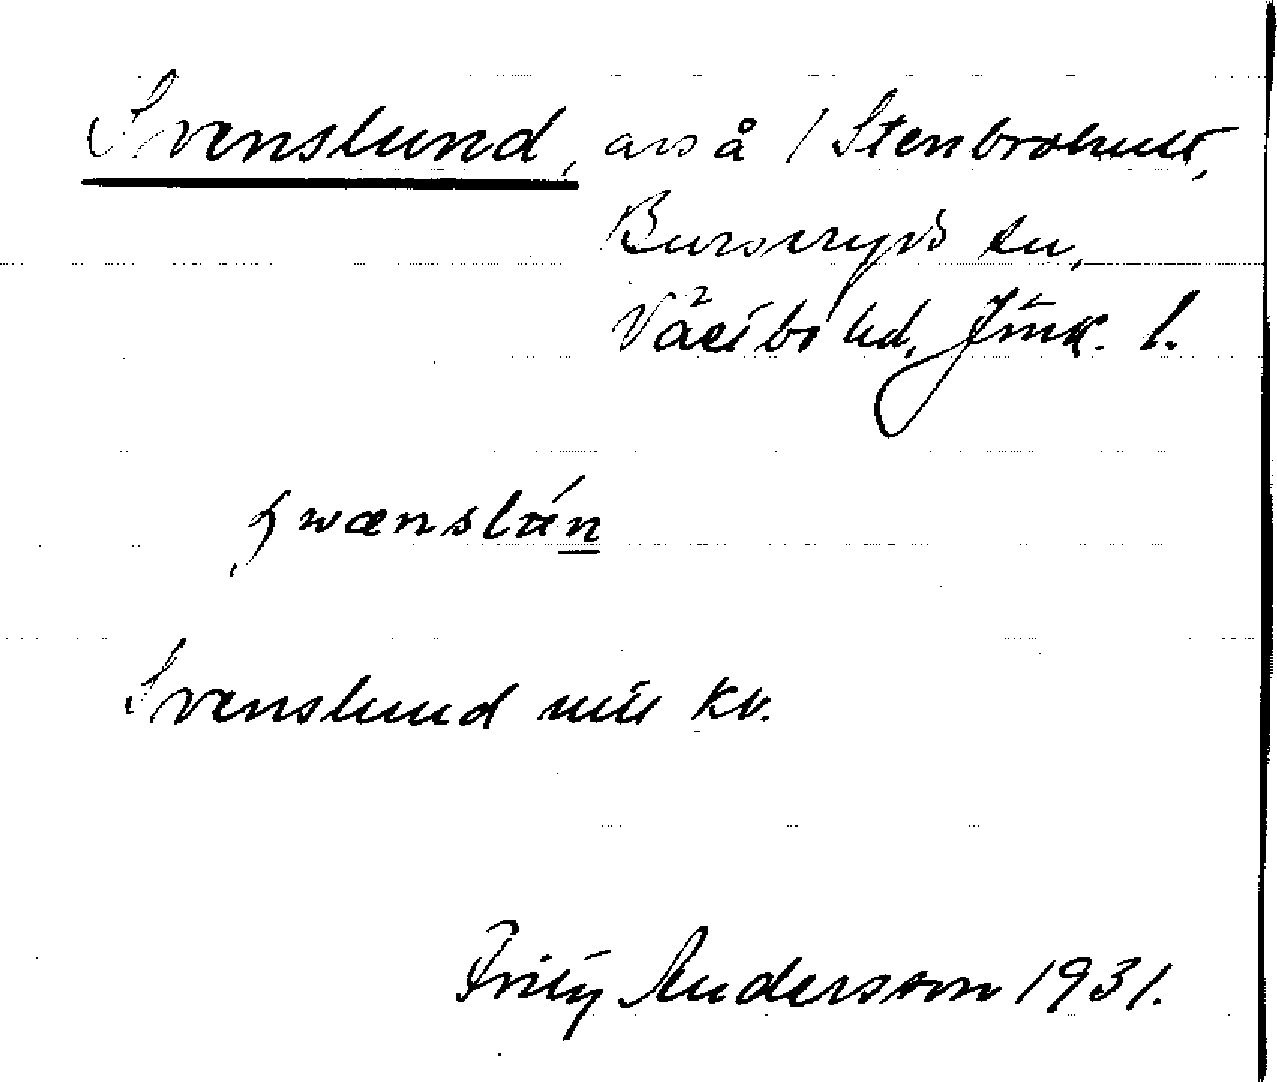 Svenslund, avs å 1 Stenbrohult,
Burseryds sn,
Västbo hd, Jönk. l.
swænslún
Svenslund mit kv.
Frity Andersson 1931.